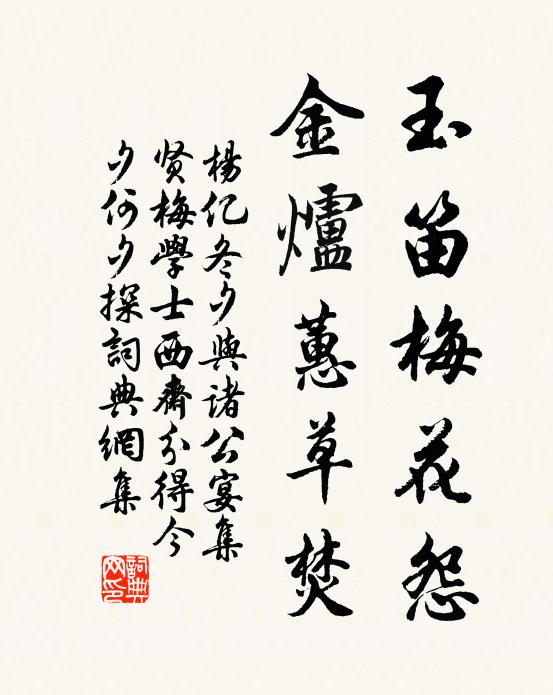 玉笛梅花怨
金爐蕙草焚
楊亿冬夕與諸公宴集
贤梅學士西齋分得今
夕何夕探詞典網集
詞典网印